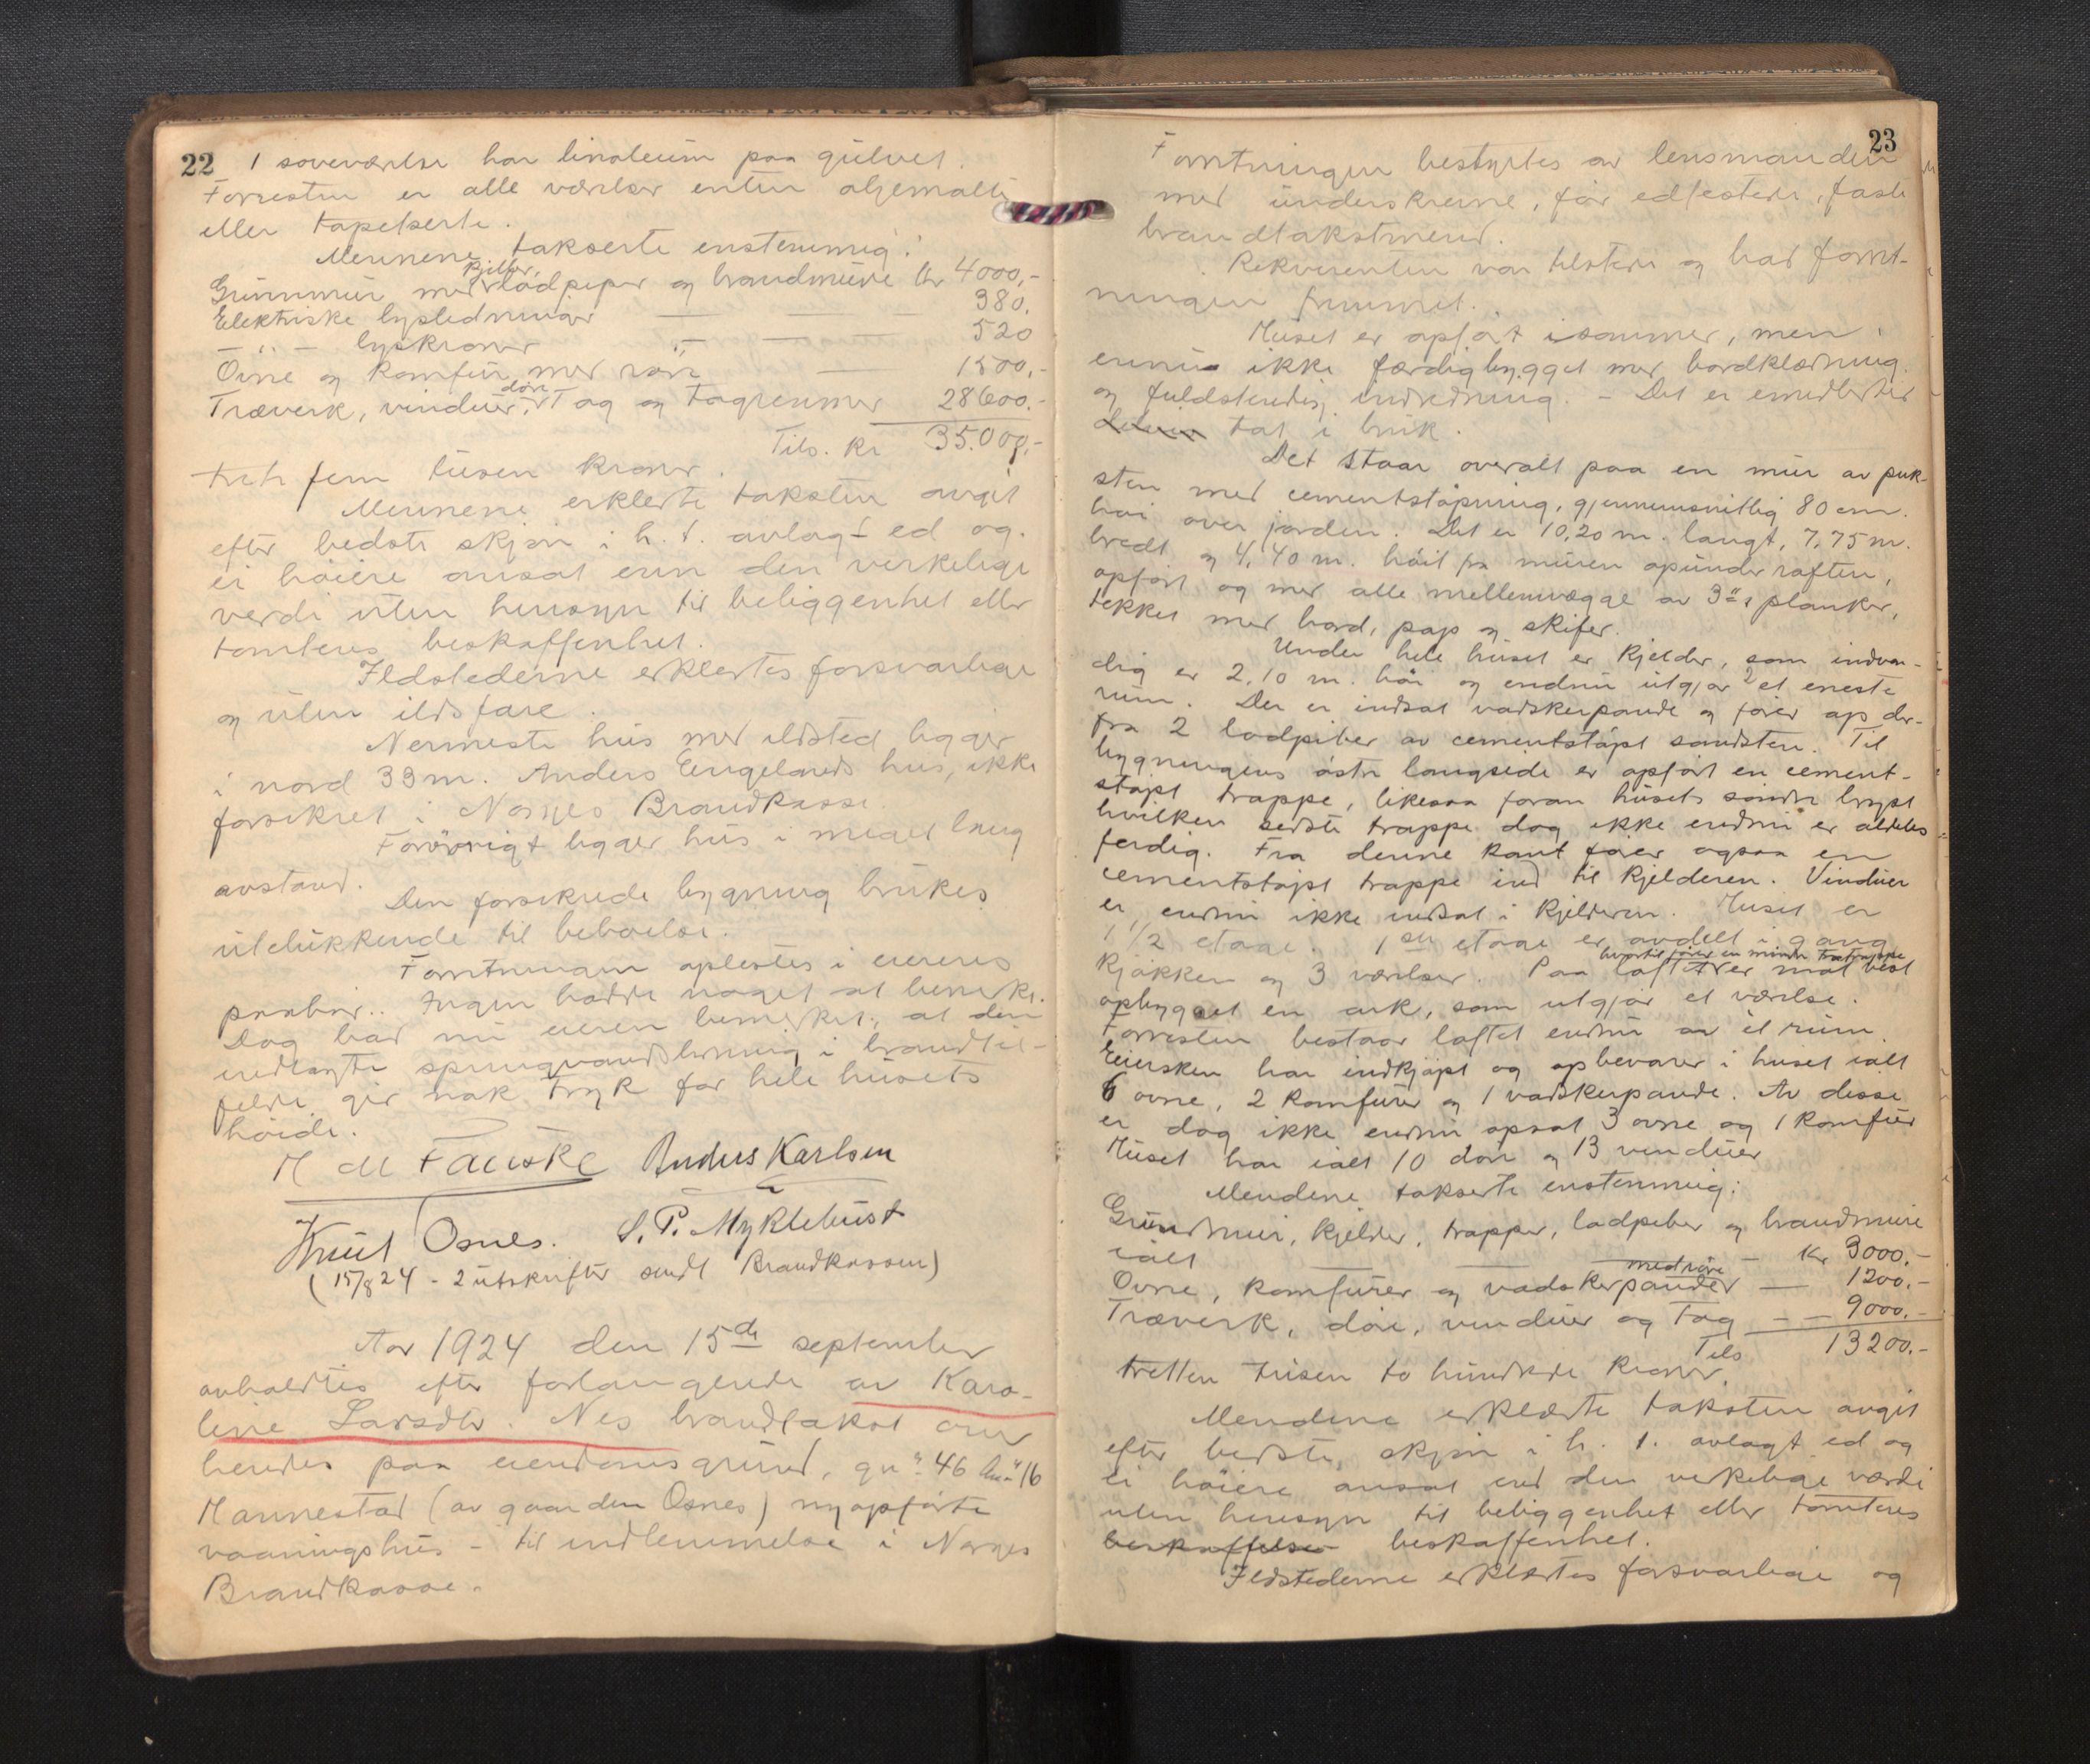 22 1 soveværelse har linoleum paa gulvet.
Forresten er alle værelser enten oljemalte
eller tapetserte.
Mennene takserte enstemmig:
kjelder,
Grunnmur med lodpiper og brandmure kr 4000,-
Elektriske lysledninger — — 380.
— " — lyskroner — " — 520
Ovne og komfur med rør — 1500,-
døre
Træverk, vinduer, Tag og tagrenner 28600.-
Tils. kr 35.000,-
tretti fem tusen kroner.
Mennene erklerte taksten avgit
efter bedste skjøn i h. t. avlagt ed og
ei høiere ansat enn den verkelige
verdi uten hensyn til beliggenhet eller
tomtens beskaffenhet.
Ildstederne erklertes forsvarlige
og uten ildsfare.
Nermeste hus med ildsted ligger
i nord 33 m. Anders Engelands hus, ikke
forsikret i Norges Brandkasse.
Forøvrigt ligger hus i meget lang
avstand.
Den forsikrede bygning brukes
utelukkende til beboelse.
Forretningen oplestes i eierens
paahør. Ingen hadde noget at bemerke.
Dog bad nu eieren bemerket, at den
indlagte springvandsledning i brandtil-
felde gir nok tryk for hele husets
høide.
M M Fauske Anders Karlsen
Knut Osnes. S. P. Myklebust
(15/8 24 - 2 utskrifter sendt Brandkassen)
Aar 1924 den 15de september
avholdtes efter forlangende av Karo-
line Larsdtr. Nes brandtakst over
hendes paa eiendomsgrund, gn. 46 bn. 16
Mannestad (av gaarden Osnes) nyopførte
vaaningshus - til indlemmelse i Norges
Brandkasse.
23
Forretningen bestyrtes av lensmanden
med underskrevne, før edfestede, faste
brandtakstmend.
Rekvirenten var tilstede og bad forret-
ningen fremmet.
Huset er opført isommer, men
ennu ikke færdigbygget med bordklædning
og fuldstendig indredning. - Det er emidlertid
tat i bruk.
Det staar overalt paa en mur av puk-
sten med cementstøpning, gjennemsnitlig 80 cm.
høi over jorden. Det er 10,20 m. langt, 7,75 m.
bredt og 4,40 m. høit fra muren opunder raften,
opført og med alle mellemvægge av 3"s planker,
tekket med bord, pap og skifer.
Under hele huset er kjelder, som indven-
dig er 2,10 m. høi og endnu utgjør et eneste
rum. Der er indsat vadskerpande og fører op der-
fra 2 lodpiber av cementstøpt sandsten. Til
bygningens østre langside er opført en cement-
støpt trappe, likesaa foran husets søndre bryst
hvilken sidste trappe dog ikke endnu er aldeles
ferdig. Fra denne kant fører ogsaa en
cementstøpt trappe ind til kjelderen. Vinduer
er endnu ikke indsat i kjelderen. Huset er
1 1/2 etage. 1ste etage er avdelt i gang
hvortil fører en mindre trætrappe
kjøkken og 3 værelser. Paa loftet er mot vest
opbygget en ark, som utgjør et værelse.
Forresten bestaar loftet endnu av et rum.
Eiersken har indkjøpt og opbevarer i huset ialt
6 ovne, 2 komfurer og 1 vadskerpande. Av disse
er dog ikke endnu opsat 3 ovne og 1 komfur
Huset har ialt 10 døre og 13 vinduer
Mendene takserte enstemmig:
Grundmur, kjelder, trapper, lodpiber og brandmure
ialt — kr 3000.-
med røre
Ovne, komfurer og vadskerpander — 1200.-
Træverk, døre, vinduer og Tag — — 9000.-
Tils 13200.-
tretten tusen to hundrede kroner.
Mendene erklærte taksten avgit
efter bedste skjøn i h. t. avlagt ed og
ei høiere ansat end den verkelige værdi
uten hensyn til beliggenhet eller tomtens
beskaffelse beskaffenhet.
Ildstederne erklærtes forsvarlige og